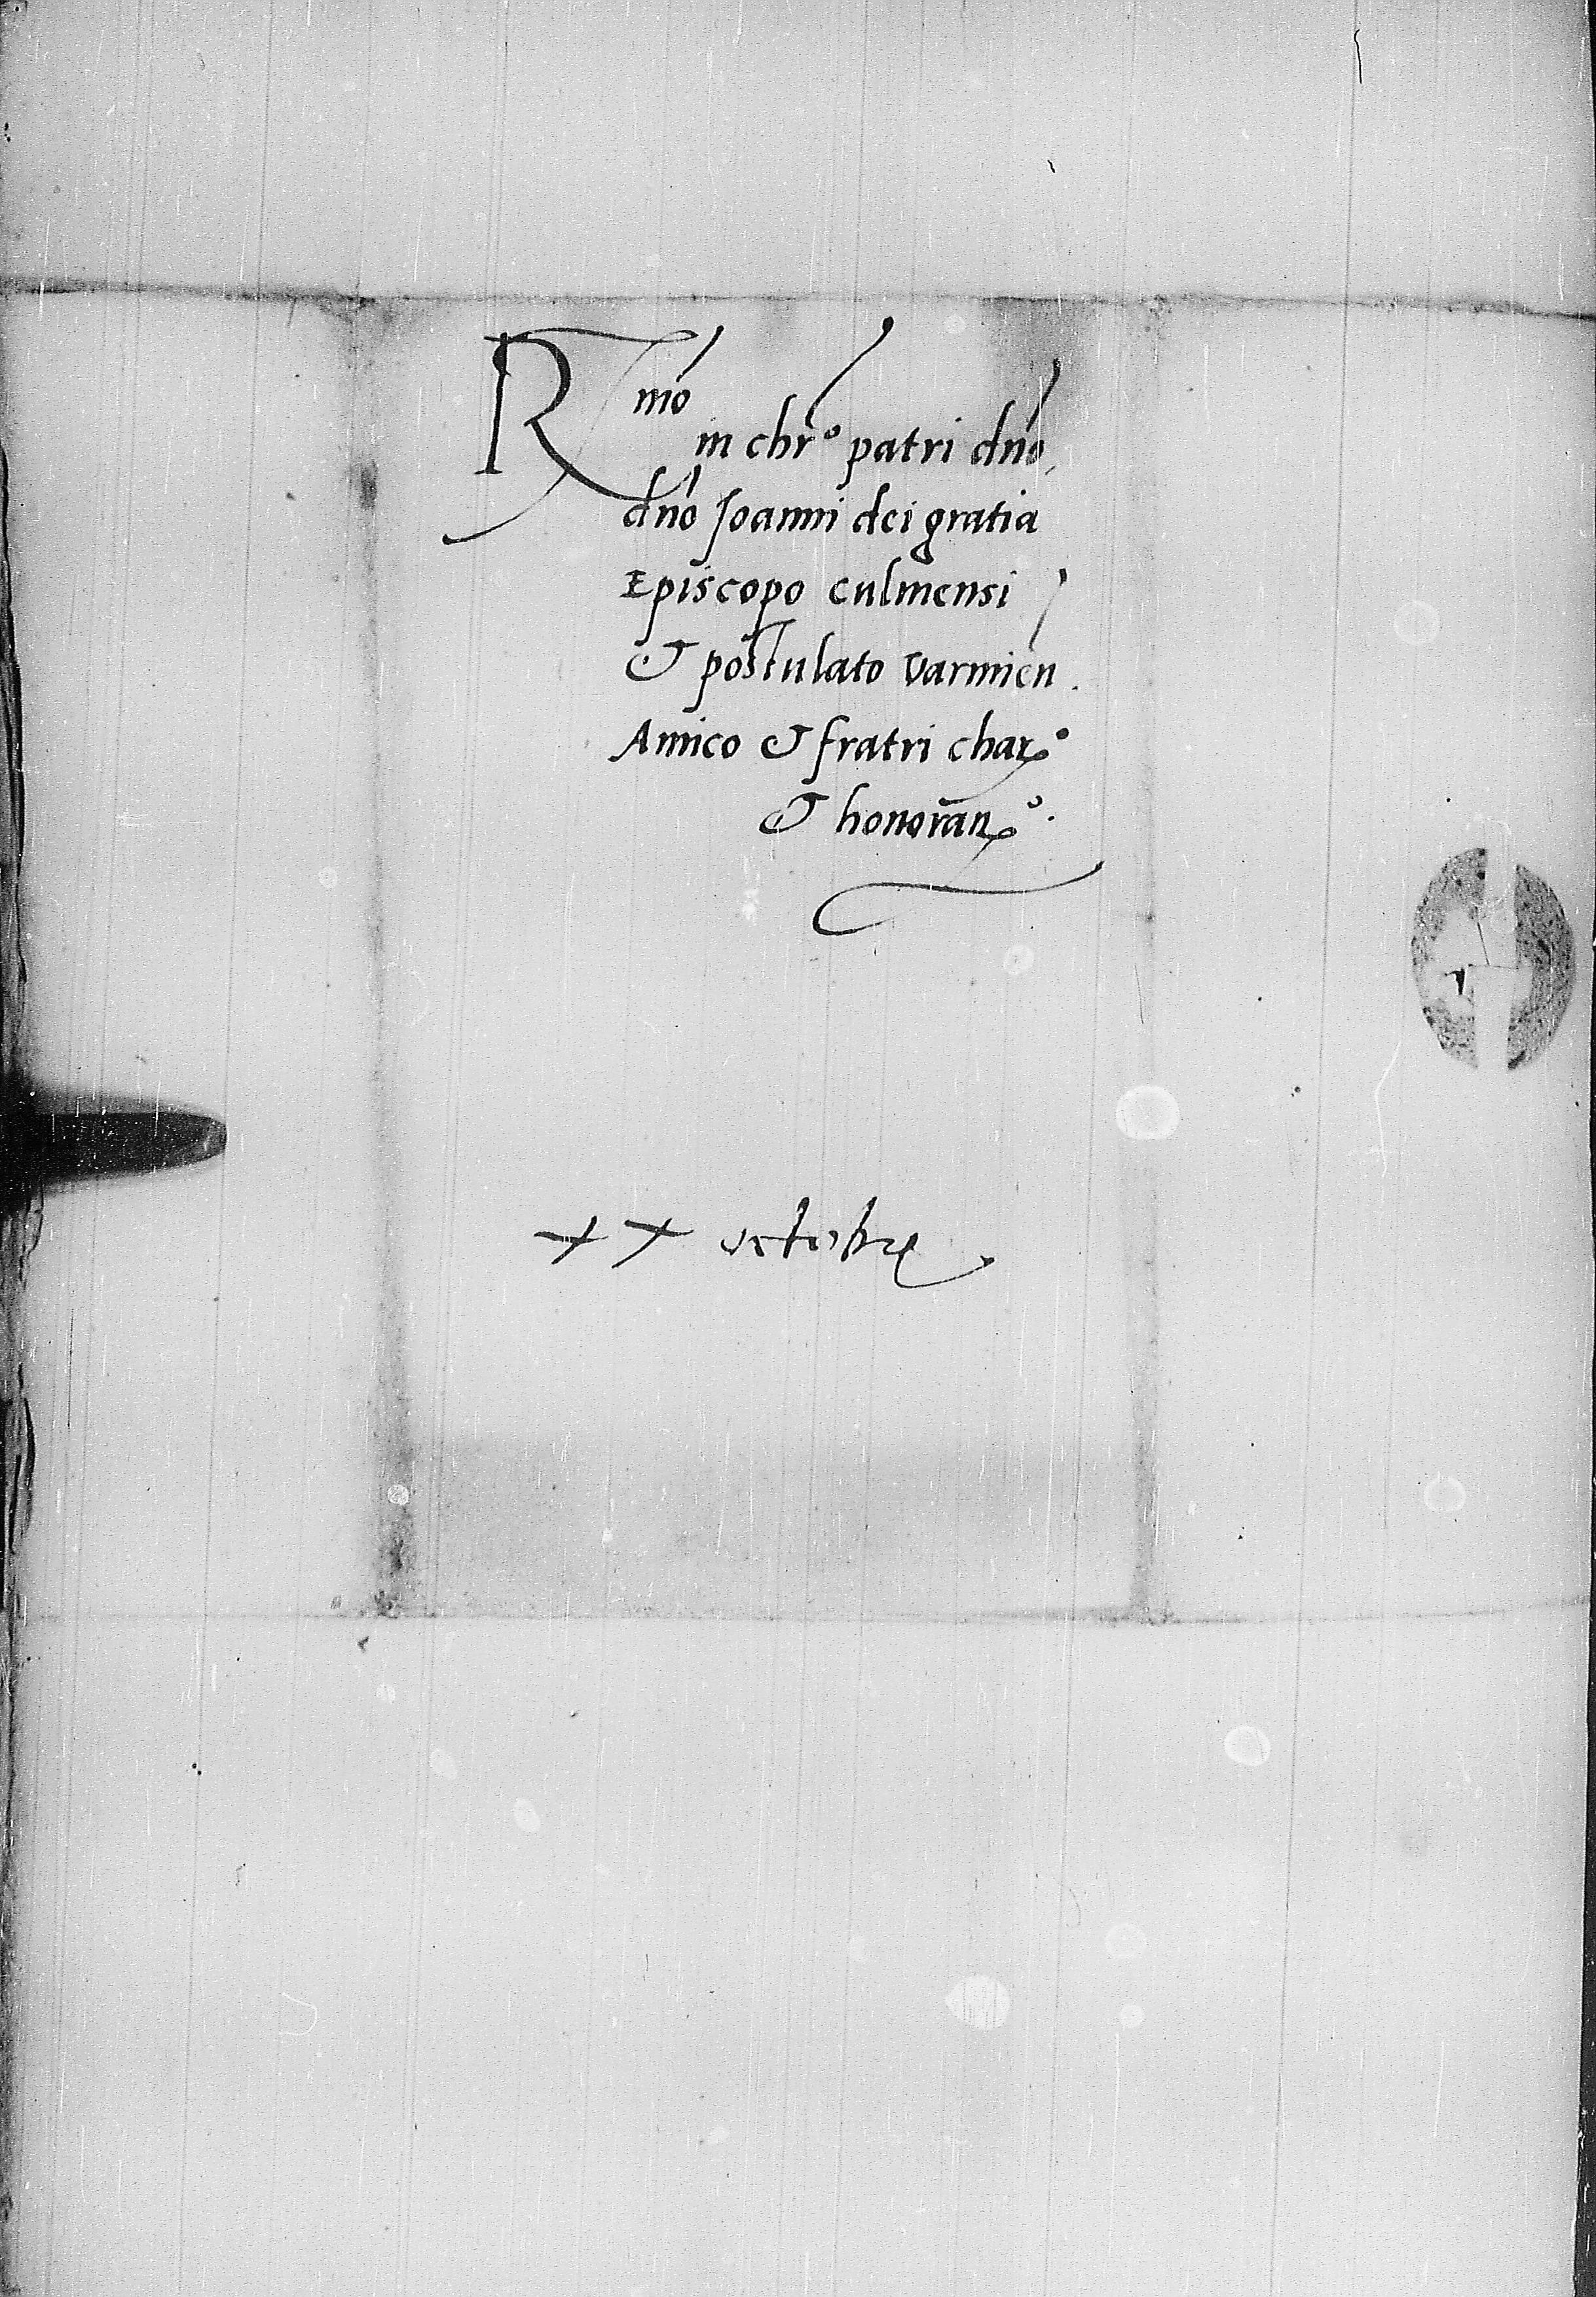 Rmo
in chro patri dno,
dno Joanni dei gratia
Episcopo culmensi
& postulato Varmien.
Amico & fratri charo
& honorano.
xx octobre